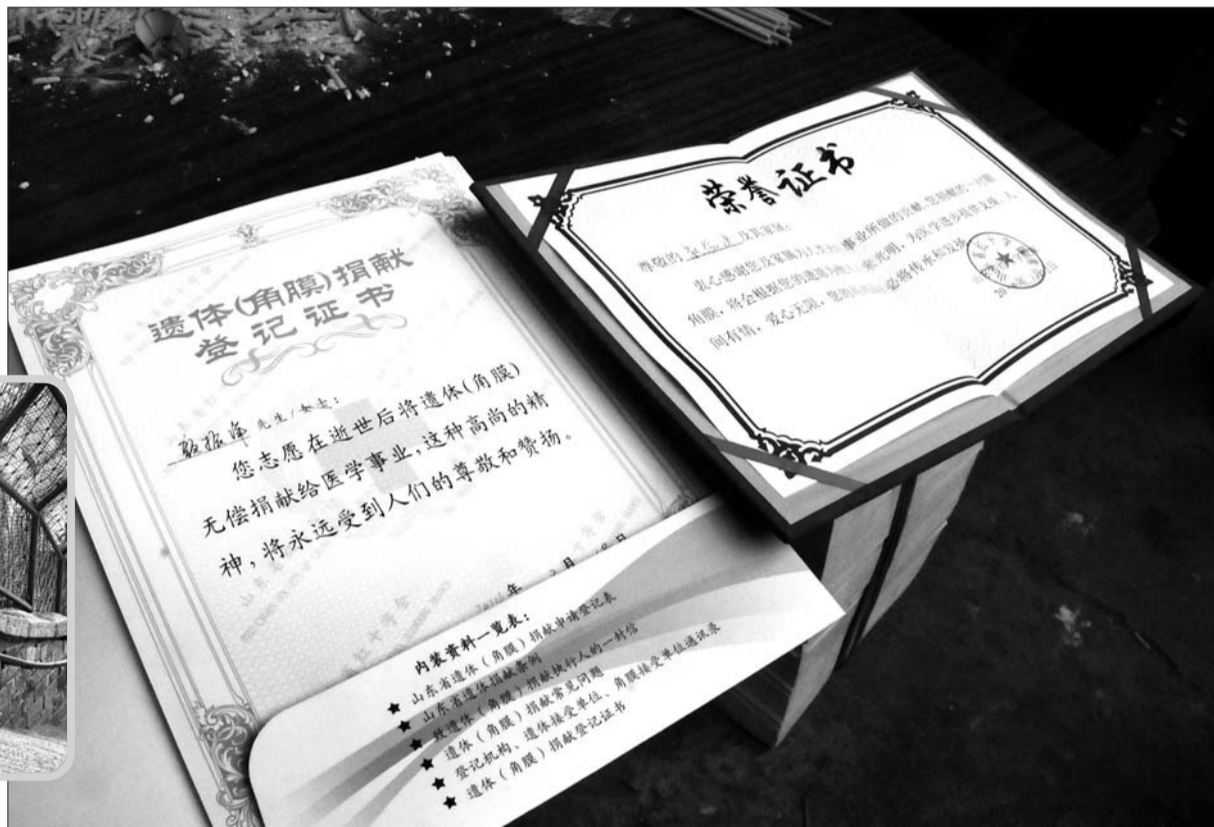 遗体(角膜)捐献
登记证书
先生/女士:
您志愿在逝世后将遗体(角膜)
无偿捐献给医学事业,这种高尚的精
神,将永远受到人们的尊敬和赞扬。
年 月 日
内装资料一览表:
★ 山东省遗体(角膜)捐献申请登记表
★ 山东省遗体捐献条例
★ 致遗体(角膜)捐献执行人的一封信
★ 遗体(角膜)捐献常见问题
★ 登记机构、遗体接受单位、角膜接受单位通讯录
★ 遗体(角膜)捐献登记证书
荣誉证书
尊敬的 及其家属:
衷心感谢您及家属为人类 事业所做的贡献,您捐献的一对眼
角膜,将会根据您的遗愿为他人 光明,为医学进步提供支持。人
间有情,爱心无限,您的 必将传承和发扬